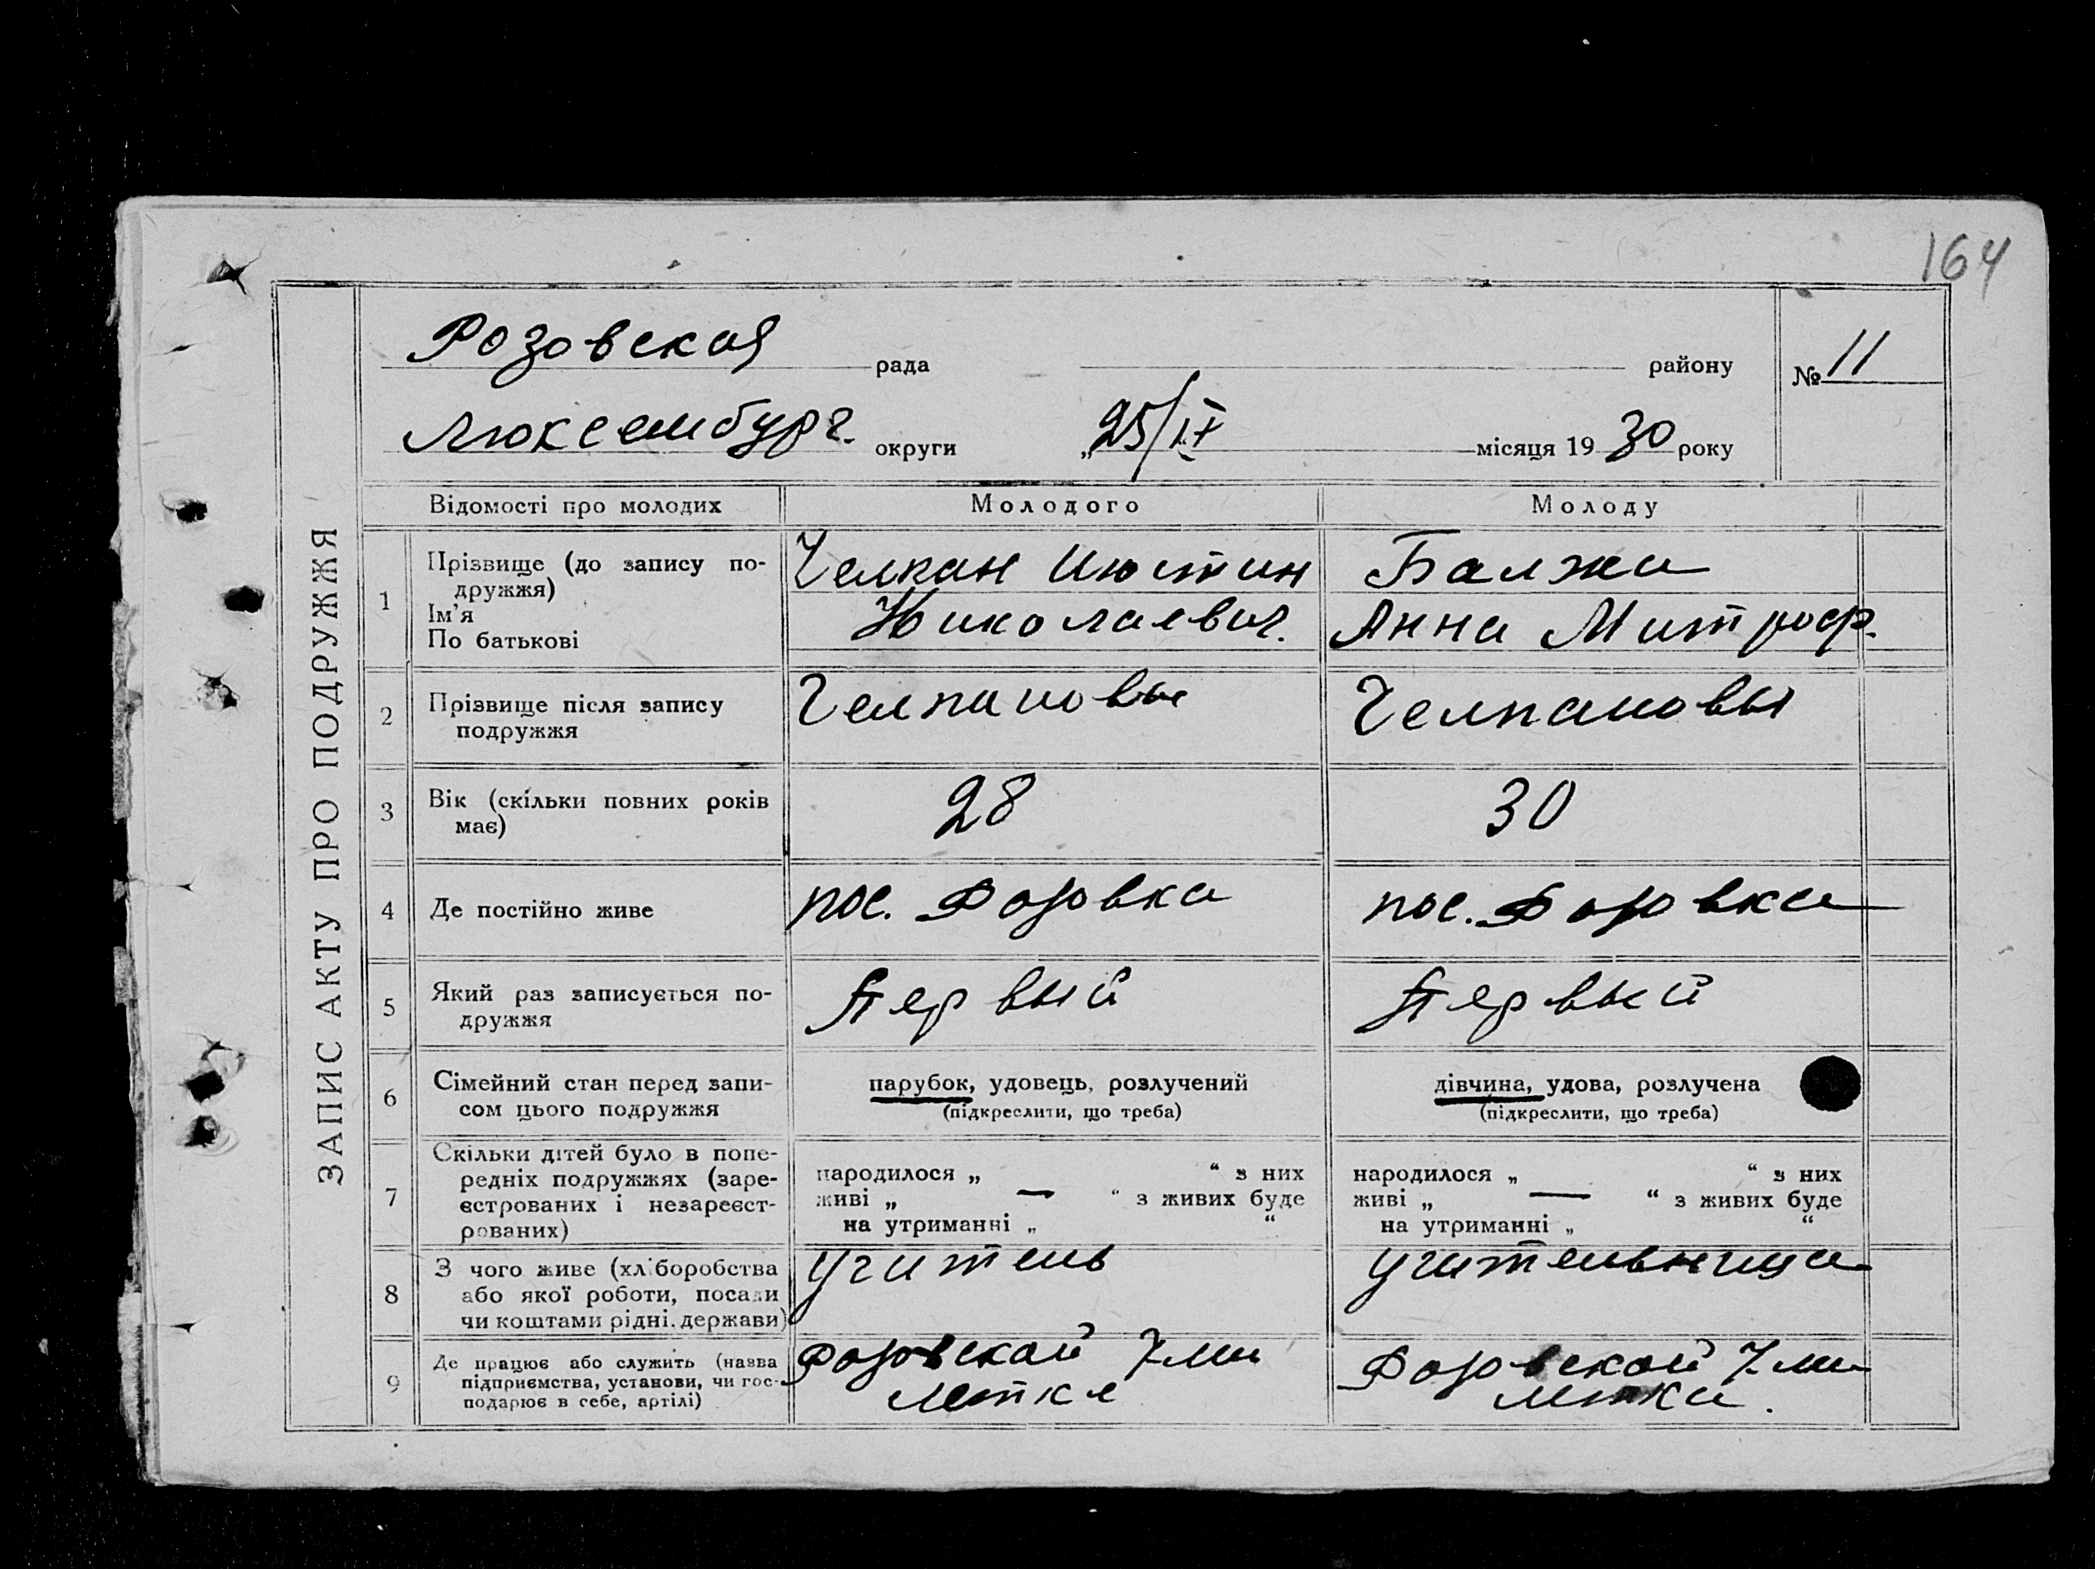 164
ЗАПИС АКТУ ПРО ПОДРУЖЖЯ
Розовская рада району
№ 11
Люксембург. округи „25/IX місяця 1930 року
Відомості про молодих Молодого Молоду
1 Прізвище (до запису по-
дружжя)
Ім'я
По батькові
Челпан Июстин
Николаевич.
Балжи
Анна Митроф.
2 Прізвище після запису
подружжя
Челпановы
Челпановы
3 Вік (скільки повних років
має)
28
30
4 Де постійно живе
пос. Розовка
пос. Розовка
5 Який раз записується по-
дружжя
Первый
Первый
6 Сімейний стан перед запи-
сом цього подружжя
парубок, удовець, розлучений
(підкреслити, що треба)
дівчина, удова, розлучена
(підкреслити, що треба)
7 Скільки дітей було в попе-
редніх подружжях (заре-
єстрованих і незареєст-
рованих)
народилося „ “ з них
живі „ — “ з живих буде
на утриманні „ “
народилося „ “ з них
живі „ — “ з живих буде
на утриманні „ “
8 З чого живе (хліборобства
або якої роботи, посади
чи коштами рідні. держави)
учитель
учительница
9 Де працює або служить (назва
підприємства, установи, чи гос-
подарює в себе, артілі)
Розовской 7ми
летке
Розовской 7ми
летки.